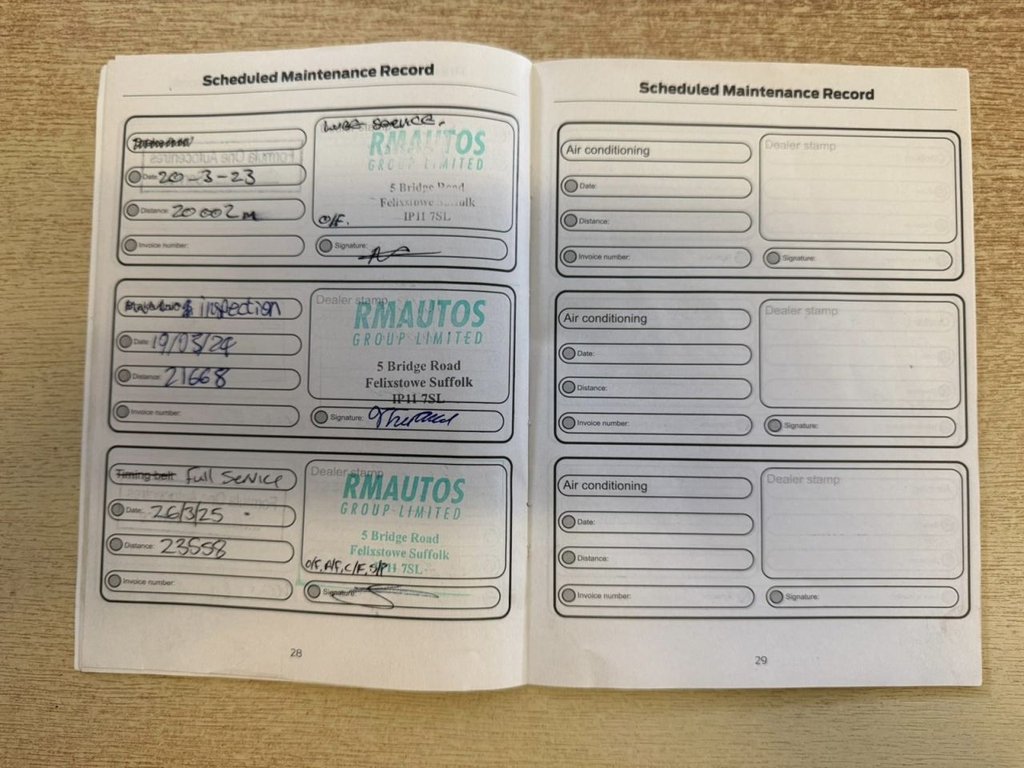 Scheduled Maintenance Record
Date: 20-3-23
Distance: 20002m
Invoice number:
LUBE SERVICE.
RMAUTOS
GROUP LIMITED
5 Bridge Road
Felixstowe Suffolk
IP11 7SL
O/F.
Signature:
inspection
Date: 19/03/24
Distance: 21668
Invoice number:
Dealer stamp
RMAUTOS
GROUP LIMITED
5 Bridge Road
Felixstowe Suffolk
IP11 7SL
Signature:
Timing belt Full Service
Date: 26/3/25
Distance: 23558
Invoice number:
Dealer stamp
RMAUTOS
GROUP LIMITED
5 Bridge Road
Felixstowe Suffolk
O/F, A/F, C/F, S/P IP11 7SL
Signature:
28
Scheduled Maintenance Record
Air conditioning
Date:
Distance:
Invoice number:
Dealer stamp
Signature:
Air conditioning
Date:
Distance:
Invoice number:
Dealer stamp
Signature:
Air conditioning
Date:
Distance:
Invoice number:
Dealer stamp
Signature:
29